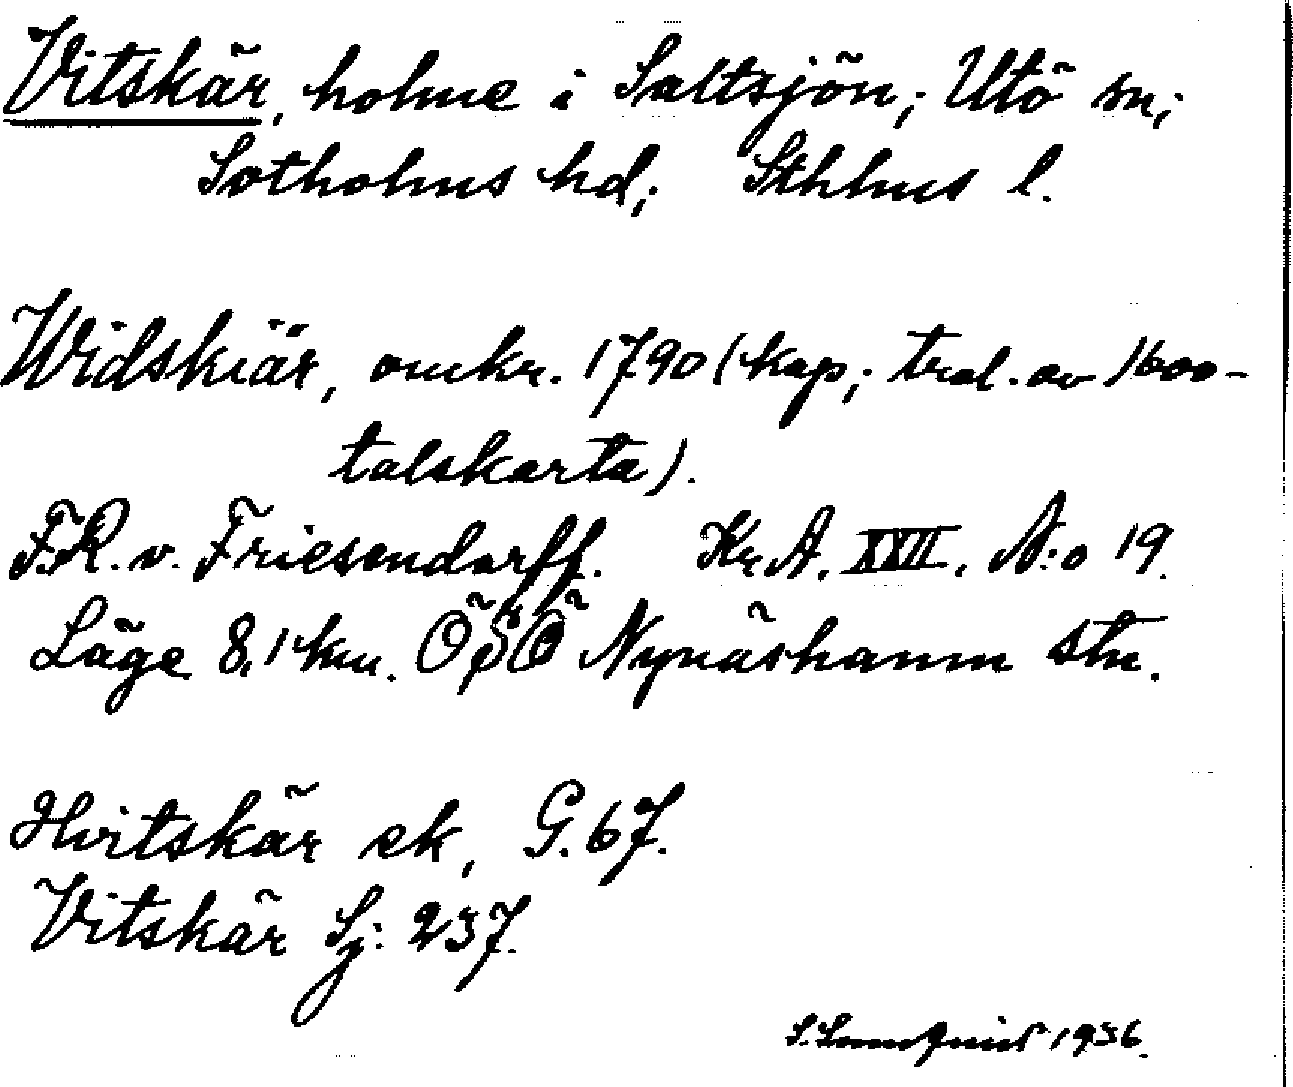 Vitskär, holme i Saltsjön; Utö sn;
Sotholms hd; Sthlms l.
Widskiär, omkr. 1790 (kop; trol. av 1600-
talskarta).
F.R. v. Friesendorff. Kr. A. XXII. N:o 19.
Läge 8,1 km. ÖSÖ Nynäshamn stn.
Hvitskär ek, G. 67.
Vitskär Sj: 237.
1936.